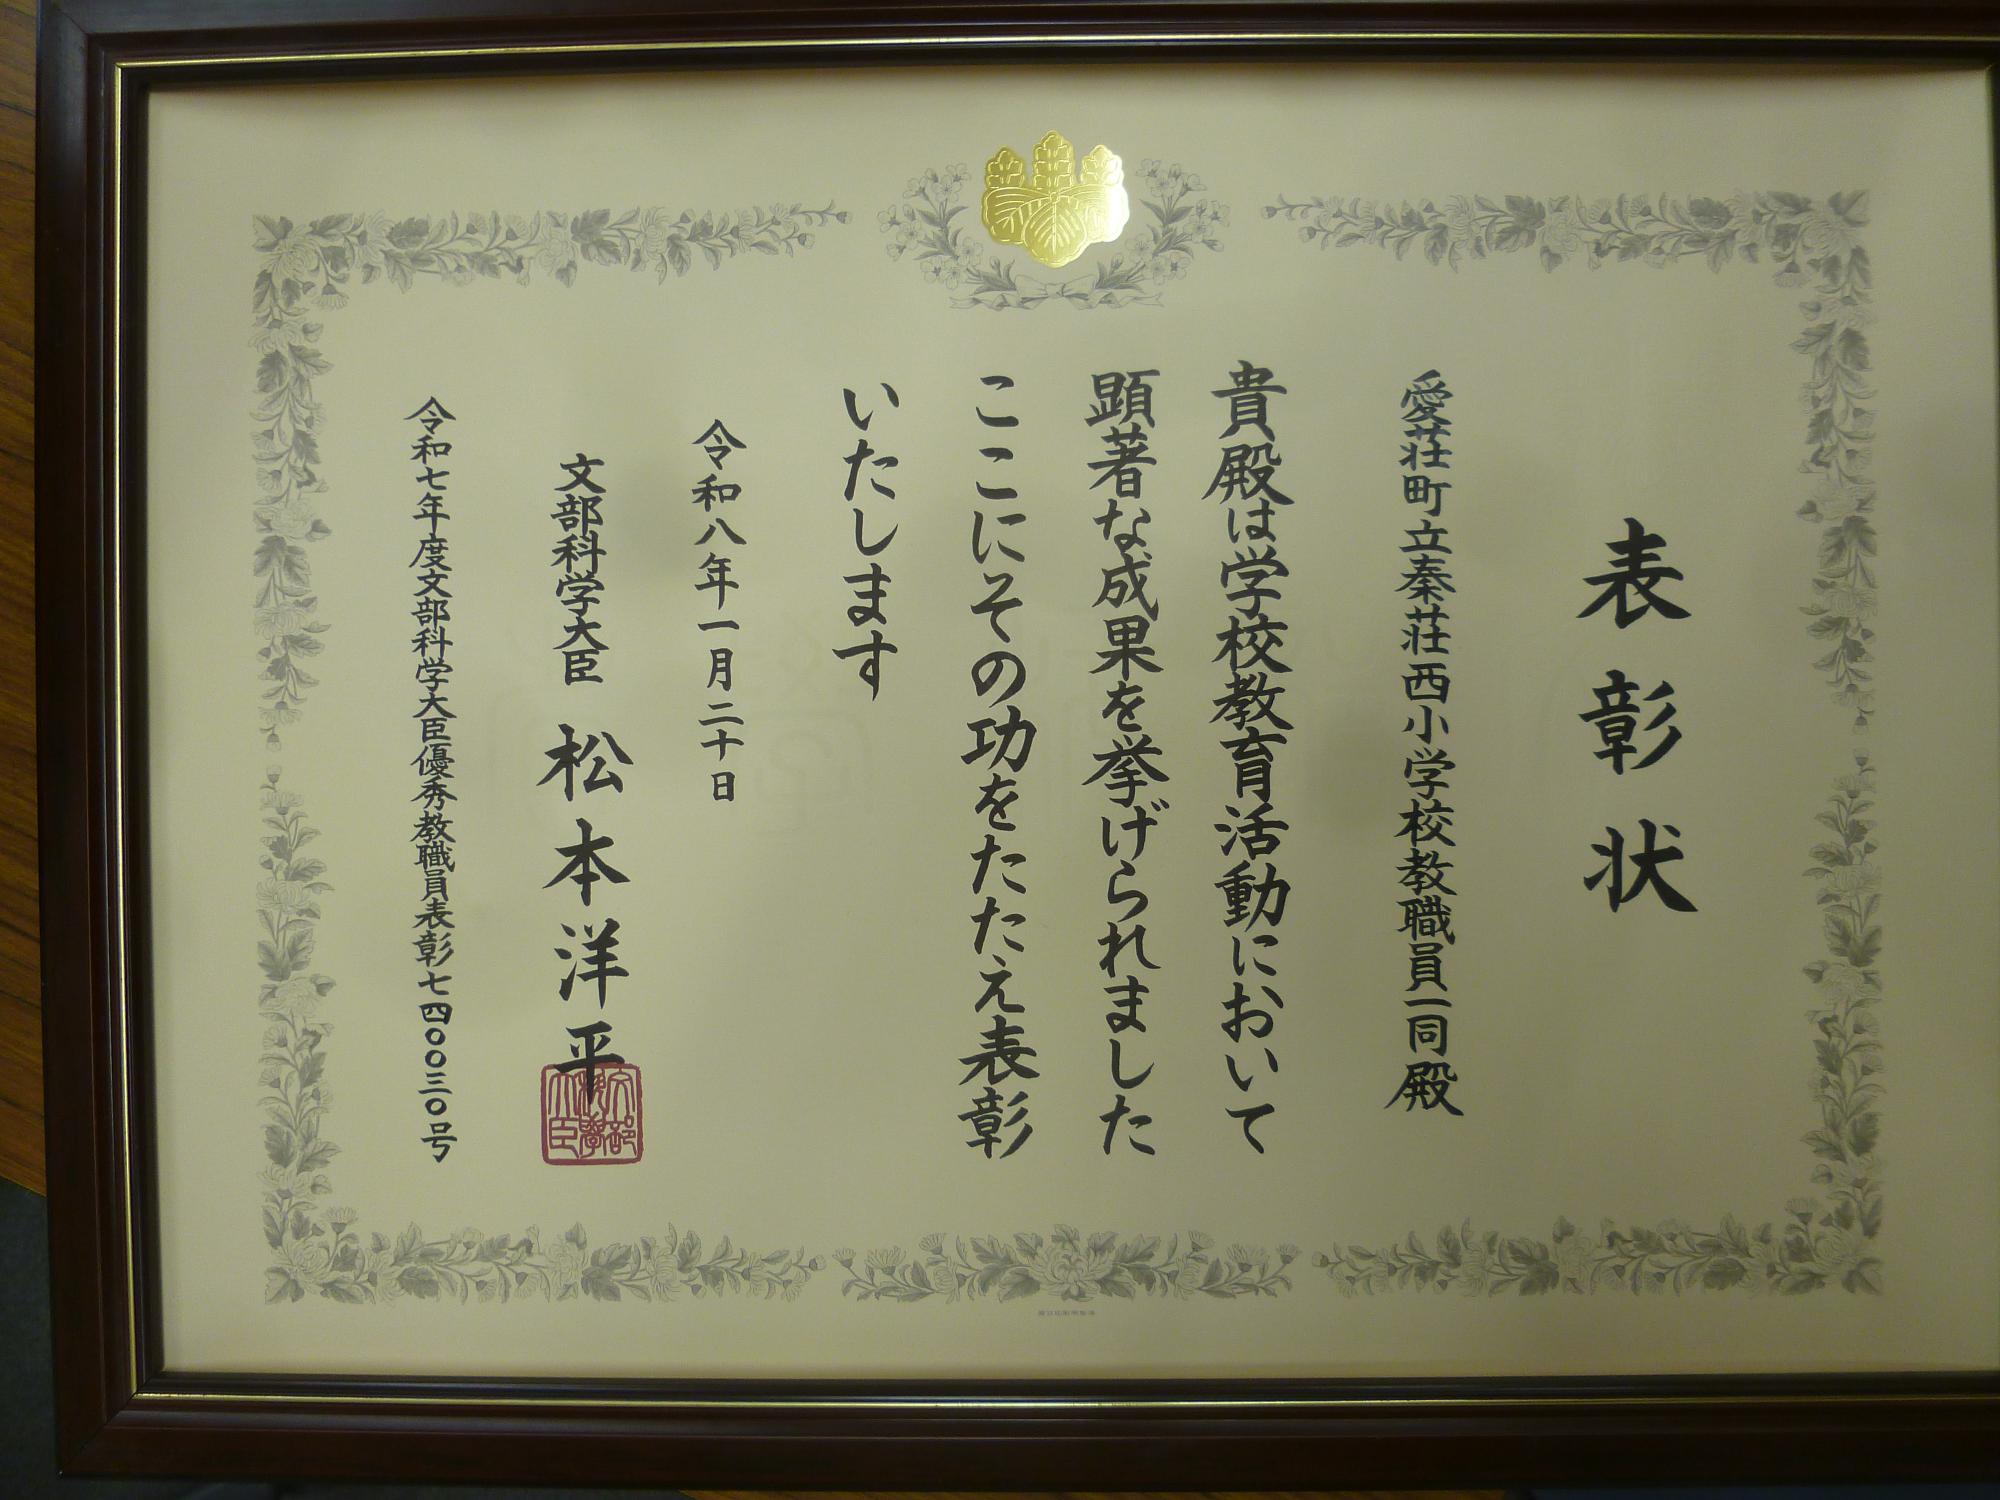 表彰状
愛荘町立秦荘西小学校教職員一同殿
貴殿は学校教育活動において
顕著な成果を挙げられました
ここにその功をたたえ表彰
いたします
令和八年一月二十日
文部科学大臣 松本洋平
文部科学大臣
令和七年度文部科学大臣優秀教職員表彰七四〇〇三〇号